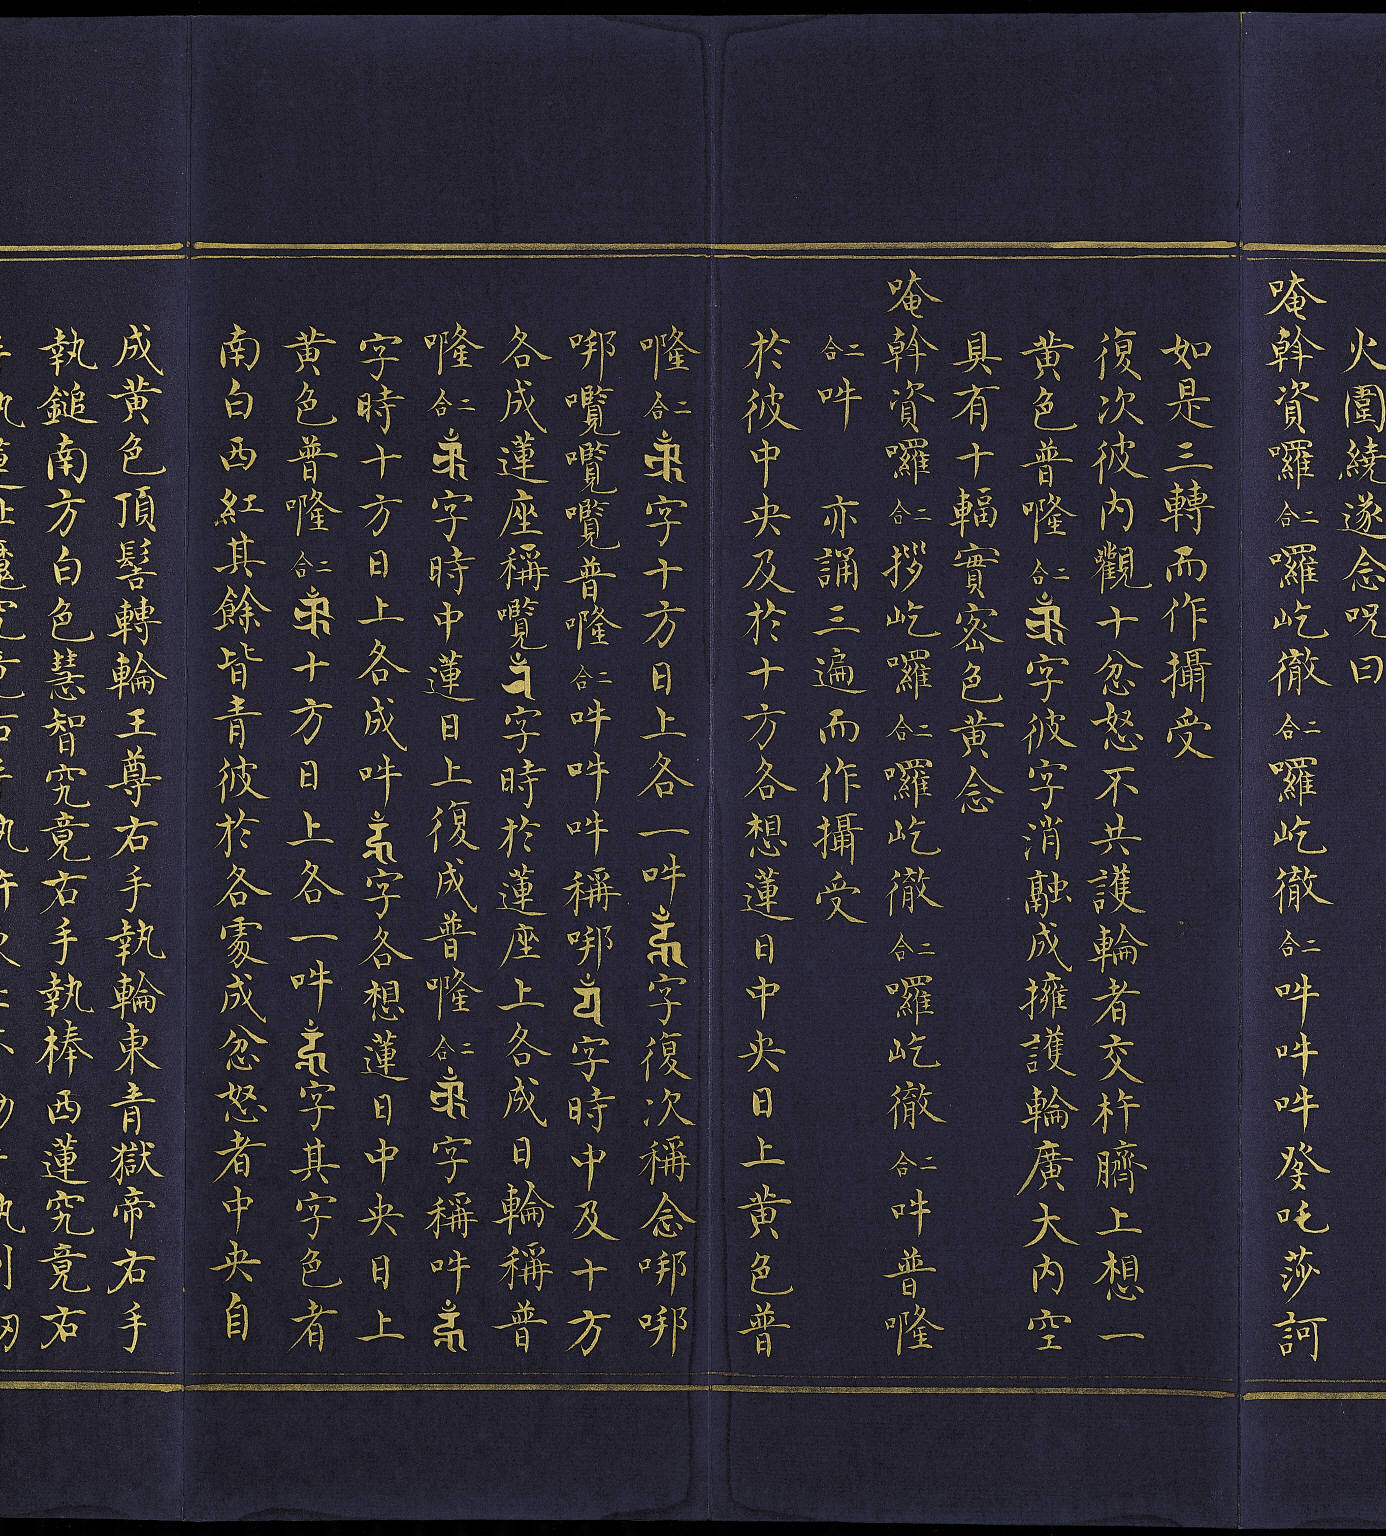 火圍繞遂念呪曰
唵斡資囉二合囉屹徹二合囉屹徹二合吽吽吽癹吒莎訶
如是三轉而作攝受
復次彼內觀十忿怒不共護輪者交杵臍上想一
黄色普㘕二合字彼字消融成擁護輪廣大內空
具有十輻實宻色黄念
唵斡資囉二合拶屹囉二合囉屹徹二合囉屹徹二合吽普㘕
二合吽　亦誦三遍而作攝受
於彼中央及於十方各想蓮日中央日上黄色普
㘕二合字十方日上各一吽字復次稱念㖿㖿
㖿囕囕囕普㘕二合吽吽吽稱㖿字時中及十方
各成蓮座稱囕字時於蓮座上各成日輪稱普
㘕二合字時中蓮日上復成普㘕二合字稱吽
字時十方日上各成吽字各想蓮日中央日上
黄色普㘕二合十方日上各一吽字其字色者
南白西紅其餘皆青彼於各處成忿怒者中央自
成黄色頂髻轉輪王尊右手執輪東青獄帝右手
執鎚南方白色慧智究竟右手執棒西蓮究竟右